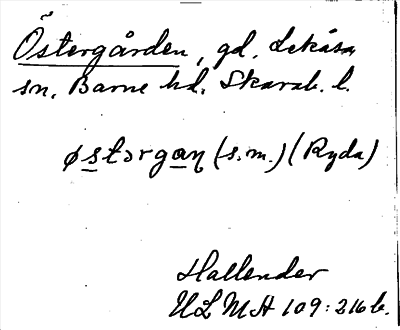 Östergården, gd. Lekåsa
sn. Barne hd. Skarab. l.
østərgaɳ (s.m.) (Ryda)
Hallender
ULMA 109:216 b.